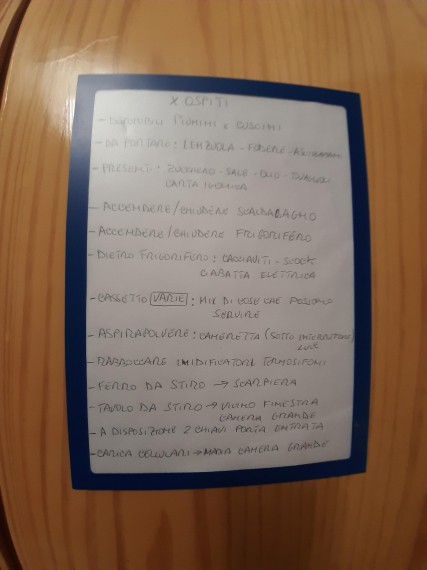 X OSPITI
- DISPONIBILI PIUMINI E CUSCINI
- DA PORTARE: LENZUOLA - FODERE - ASCIUGAMANI
- PRESENTI: ZUCCHERO - SALE - OLIO - TOVAGLIOLI
CARTA IGIENICA
- ACCENDERE/CHIUDERE SCALDABAGNO
- ACCENDERE/CHIUDERE FRIGORIFERO
- DIETRO FRIGORIFERO: CACCIAVITI -
CIABATTA ELETTRICA
- CASSETTO VARIE: MIX DI COSE CHE POSSONO
SERVIRE
- ASPIRAPOLVERE: CAMERETTA (SOTTO INTERRUTTORE)
LUCE
- RABBOCCARE UMIDIFICATORI TERMOSIFONI
- FERRO DA STIRO → SCARPIERA
- TAVOLO DA STIRO → VICINO FINESTRA
CAMERA GRANDE
- A DISPOSIZIONE 2 CHIAVI PORTA ENTRATA
- CARICA CELLULARI → MADIA CAMERA GRANDE